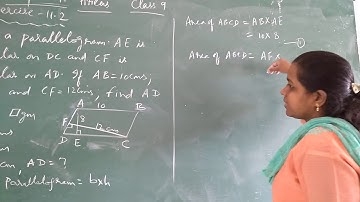 Exercise-11.2 Class 9
a parallelogram. AE is
lar on DC and CF is
lar on AD. If AB=10cms,
and CF=12cms, find AD
A 10 B
8
F 12cm
D E C
AD=?
parallelogram=bxh
Area of ABCD = ABXAE
= 10X8 ①
Area of ABCD= AF